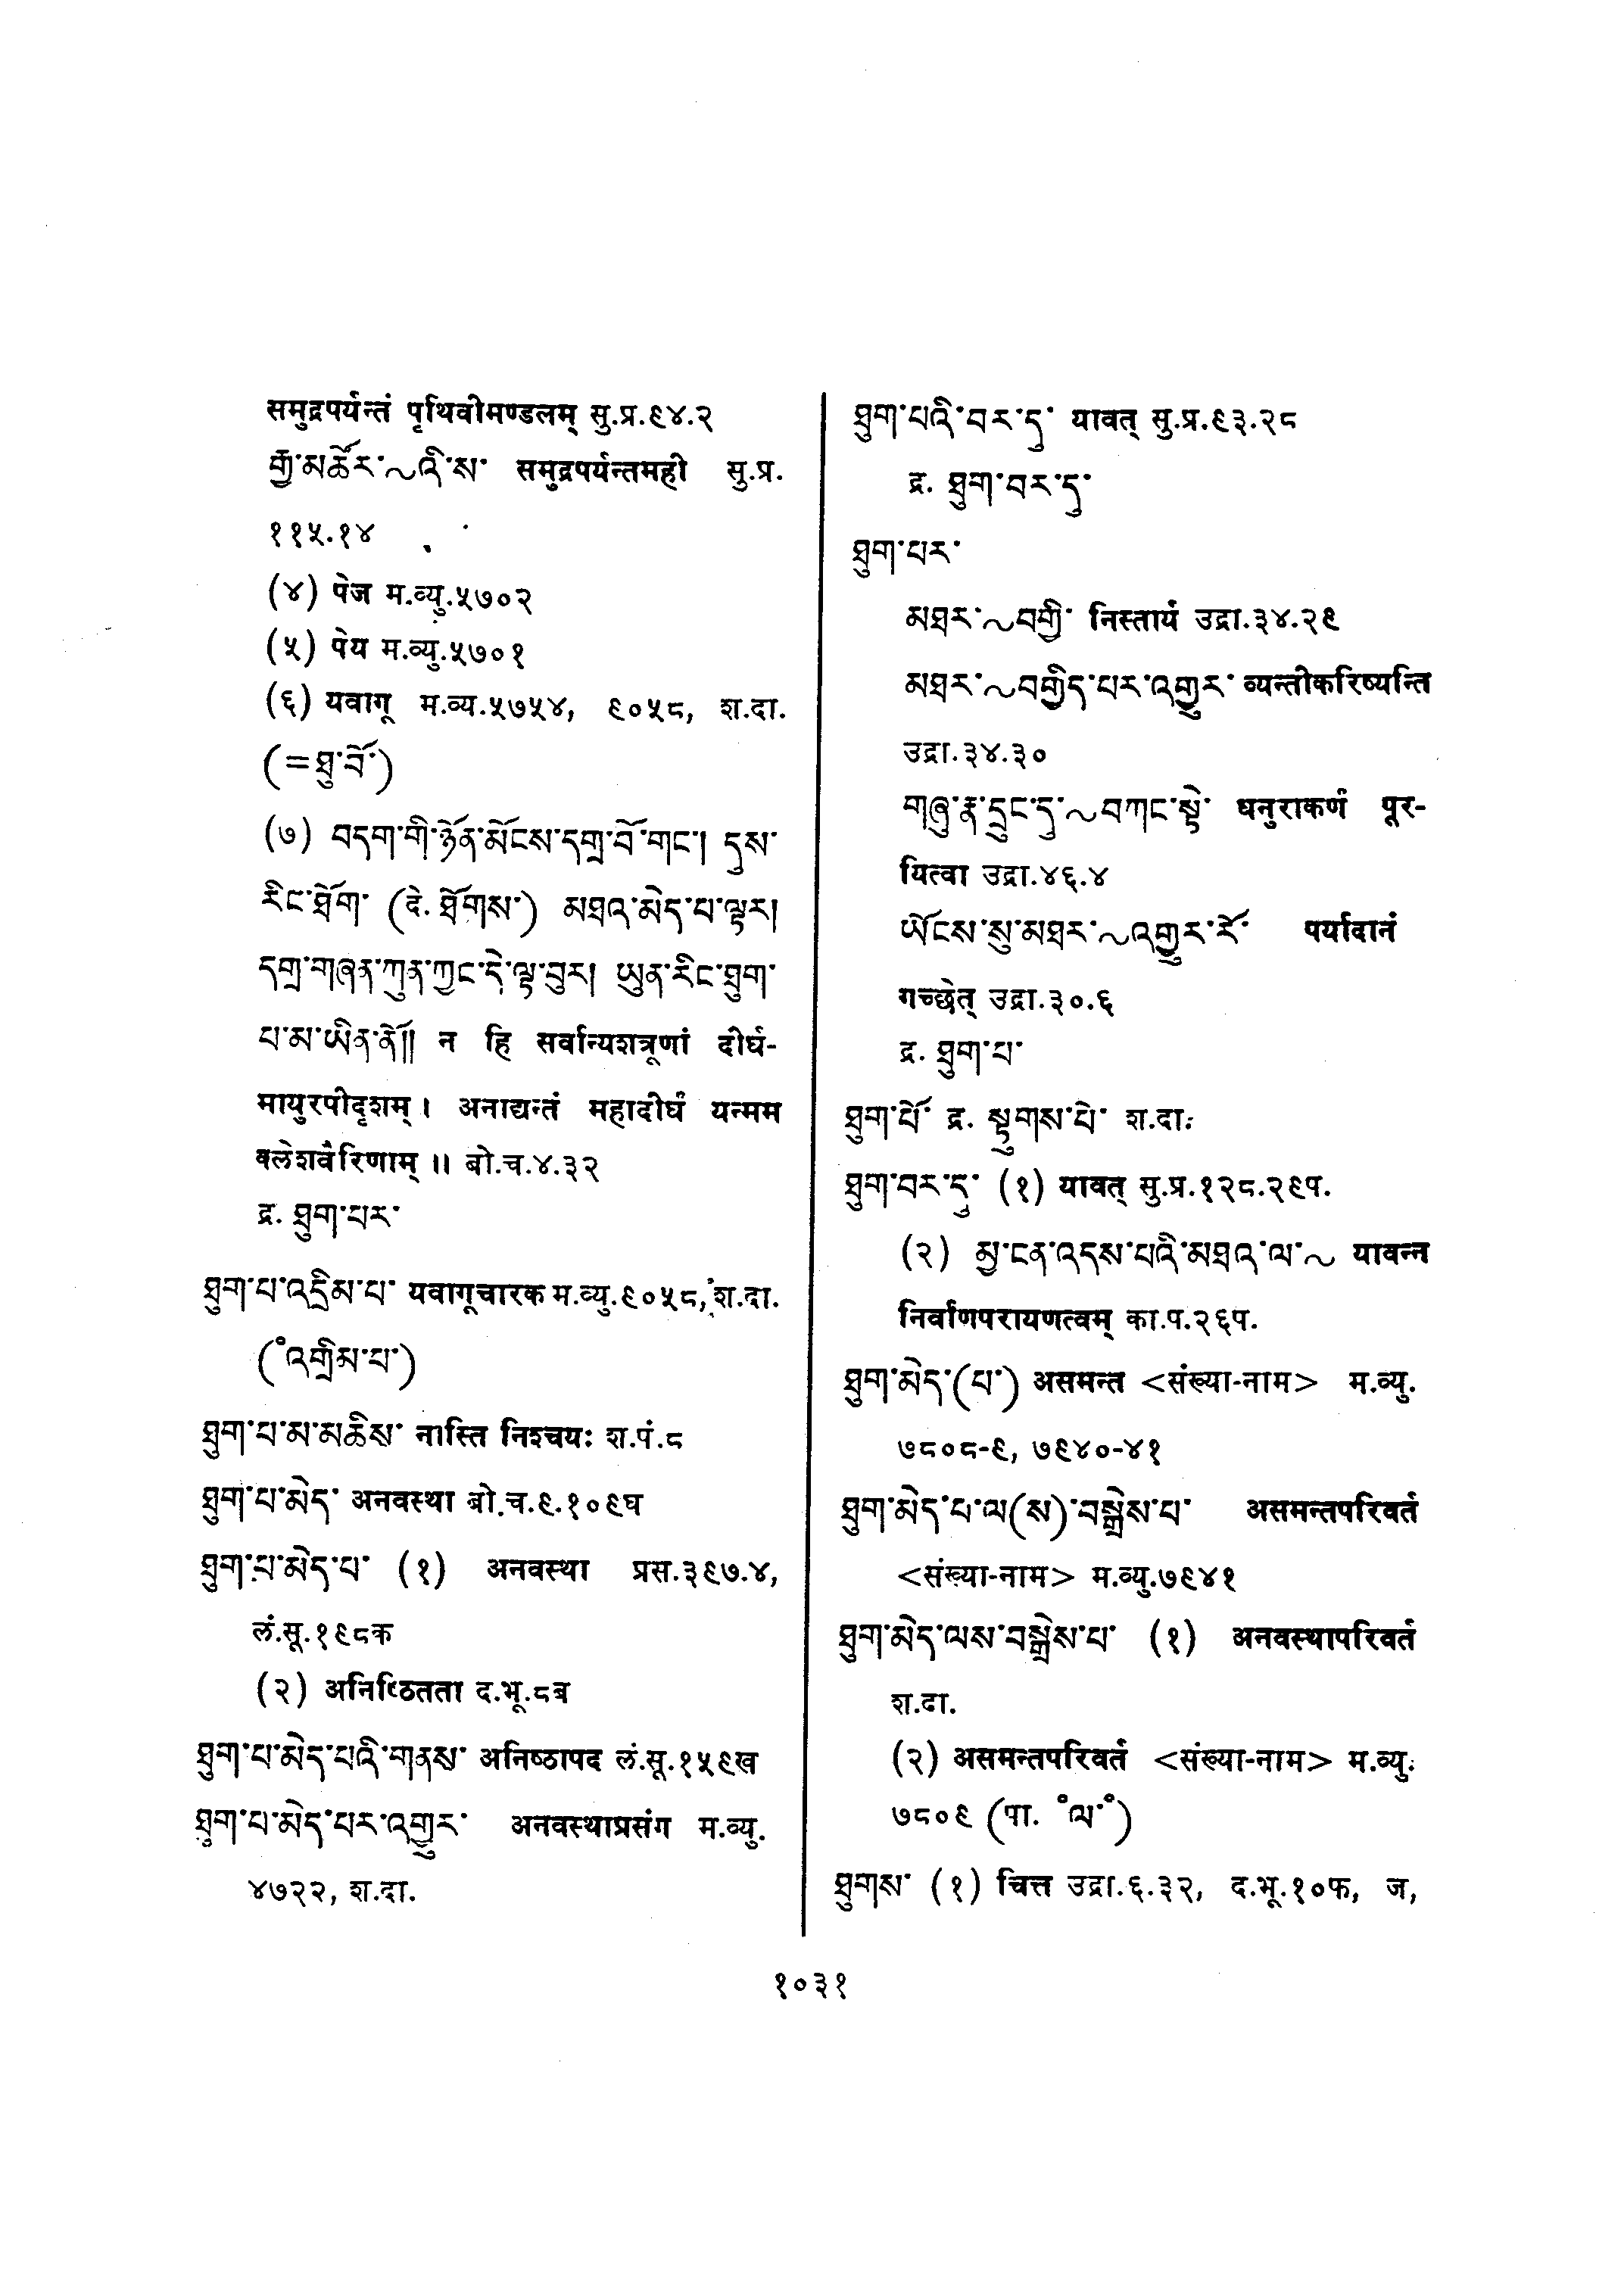 समुद्रपर्यन्तं पृथिवीमण्डलम् सु.प्र.९४.२
རྒྱ་མཚོར་~འི་ས་ समुद्रपर्यन्तमही सु.प्र.
११५.१४
(४) पेज म.व्यु.५७०२
(५) पेय म.व्यु.५७०१
(६) यवागू म.व्य.५७५४, ९०५८, श.दा.
(=ཐུ་བོ་)
(७) བདག་གི་ཉོན་མོངས་དགྲ་བོ་གང་། དུས་
རིང་ཐོག་ (दे. ཐོགས་) མཐའ་མེད་པ་ལྟར།
དགྲ་གཞན་ཀུན་ཀྱང་དེ་ལྟ་བུར། ཡུན་རིང་ཐུག་
པ་མ་ཡིན་ནོ།། न हि सर्वान्यशत्रूणां दीर्घ-
मायुरपीदृशम् । अनाद्यन्तं महादीर्घं यन्मम
क्लेशवैरिणाम् ॥ बो.च.४.३२
द्र. ཐུག་པར་
ཐུག་པ་འདྲིམ་པ་ यवागूचारक म.व्यु.९०५८, श.दा.
(°འགྲིམ་པ་)
ཐུག་པ་མ་མཆིས་ नास्ति निश्चयः श.पं.८
ཐུག་པ་མེད་ अनवस्था बो.च.९.१०९घ
ཐུག་པ་མེད་པ་ (१) अनवस्था प्रस.३९७.४,
लं.सू.१९८क
(२) अनिष्ठितता द.भू.८ब
ཐུག་པ་མེད་པའི་གནས་ अनिष्ठापद लं.सू.१५९ख
ཐུག་པ་མེད་པར་འགྱུར་ अनवस्थाप्रसंग म.व्यु.
४७२२, श.दा.
ཐུག་པའི་བར་དུ་ यावत् सु.प्र.९३.२८
द्र. ཐུག་བར་དུ་
ཐུག་པར་
མཐར་~བགྱི་ निस्तार्य उद्रा.३४.२९
མཐར་~བགྱིད་པར་འགྱུར་ व्यन्तीकरिष्यन्ति
उद्रा.३४.३०
གཞུ་རྣ་དྲུང་དུ་~བཀང་སྟེ་ धनुराकर्णं पूर-
यित्वा उद्रा.४६.४
ཡོངས་སུ་མཐར་~འགྱུར་རོ་ पर्यादानं
गच्छेत् उद्रा.३०.६
द्र. ཐུག་པ་
ཐུག་པོ་ द्र. སྟུགས་པེ་ श.दा.
ཐུག་བར་དུ་ (१) यावत् सु.प्र.१२८.२९प.
(२) མྱ་ངན་འདས་པའི་མཐའ་ལ་~ यावन्न
निर्वाणपरायणत्वम् का.प.२६प.
ཐུག་མེད་(པ་) असमन्त <संख्या-नाम> म.व्यु.
७८०८-९, ७९४०-४१
ཐུག་མེད་པ་ལ(ས)་བསྒྲེས་པ་ असमन्तपरिवर्त
<संख्या-नाम> म.व्यु.७९४१
ཐུག་མེད་ལས་བསྒྲེས་པ་ (१) अनवस्थापरिवर्त
श.दा.
(२) असमन्तपरिवर्त <संख्या-नाम> म.व्यु.
७८०९ (पा. °ལ་°)
ཐུགས་ (१) चित्त उद्रा.६.३२, द.भू.१०फ, ज,
१०३१